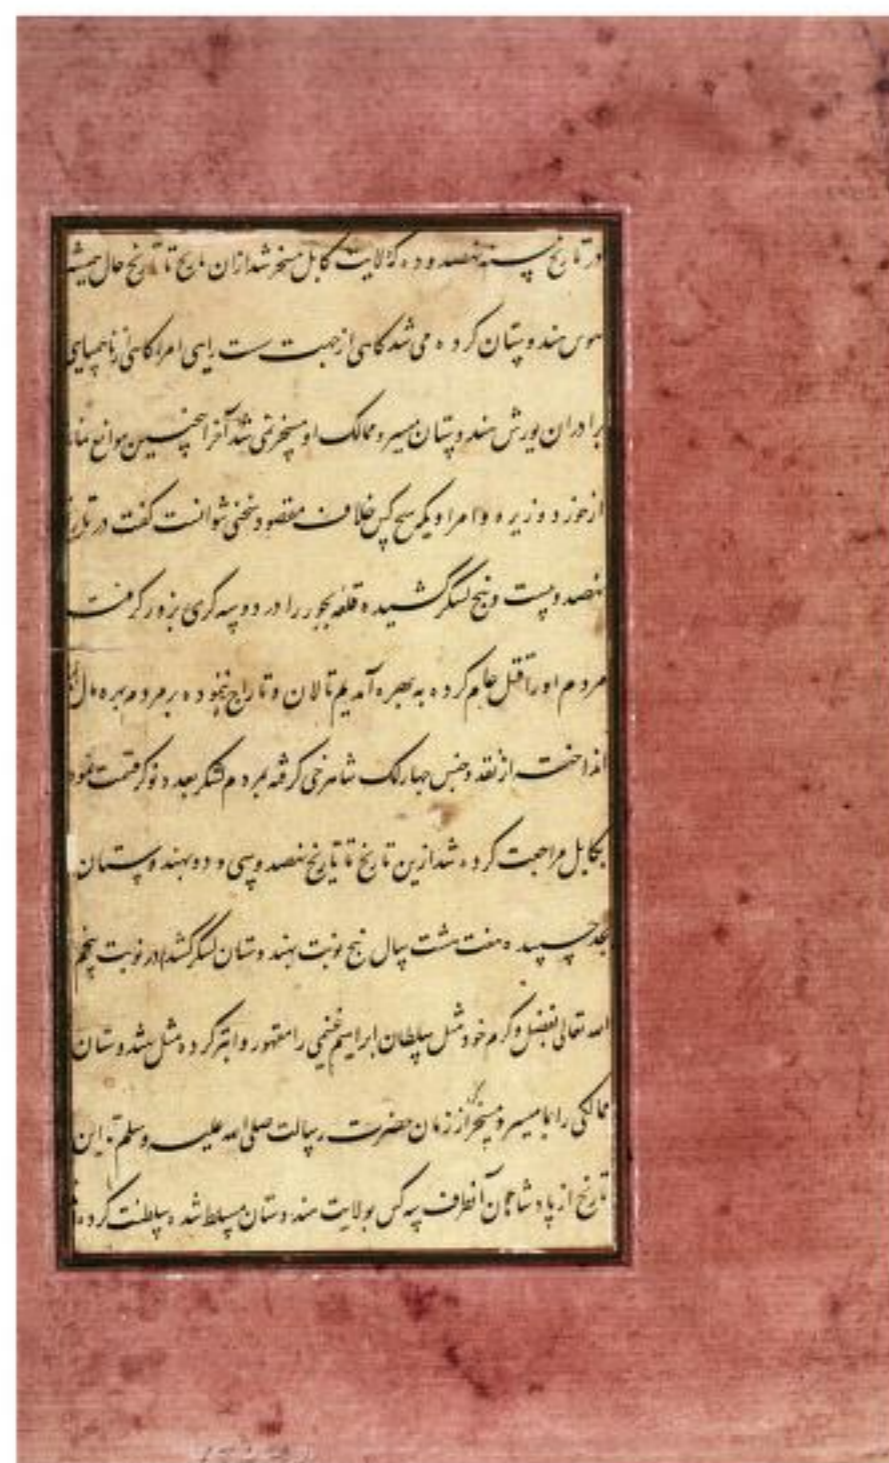 در تاریخ سنه نهصد و ده که ولایت کابل مسخر شد ازان تاریخ تا تاریخ حال همیشه
هوس هندوستان کرده می شد گاهی از جهت سست رایی امرا گاهی از ناهمپایی
برادران یورش هندوستان میسر و ممالک او مسخر نمی شد آخرا همچنین موانع نماند
از خورد و زیره و امرا و یکه هیچ کس خلاف مقصود سخنی نتوانست گفت در تاریخ
نهصد و بیست و پنج لشکر کشیده قلعه بجور را در دو سه گری بزور گرفت
مردم او را قتل عام کرده به بهره آمدیم تالان و تاراج ننموده بر مردم بهره مال
انداخت از نقد و جنس چهار لک شاهرخی گرفته بمردم لشکر بعدد نوکر قسمت نمود
بکابل مراجعت کرده شد ازین تاریخ تا تاریخ نهصد و سی و دو بهندوستان
بجد چسپیده هفت هشت سال پنج نوبت بهندوستان لشکر کشیدم در نوبت پنجم
الله تعالی بفضل و کرم خود مثل سلطان ابراهیم غنیمی را مقهور و ابتر کرده مثل هندوستان
ممالکی را بما میسر و مسخر کرد از زمان حضرت رسالت صلی الله علیه وسلم تا این
تاریخ از پادشاهان آنطرف سه کس بولایت هندوستان مسلط شده سلطنت کرده